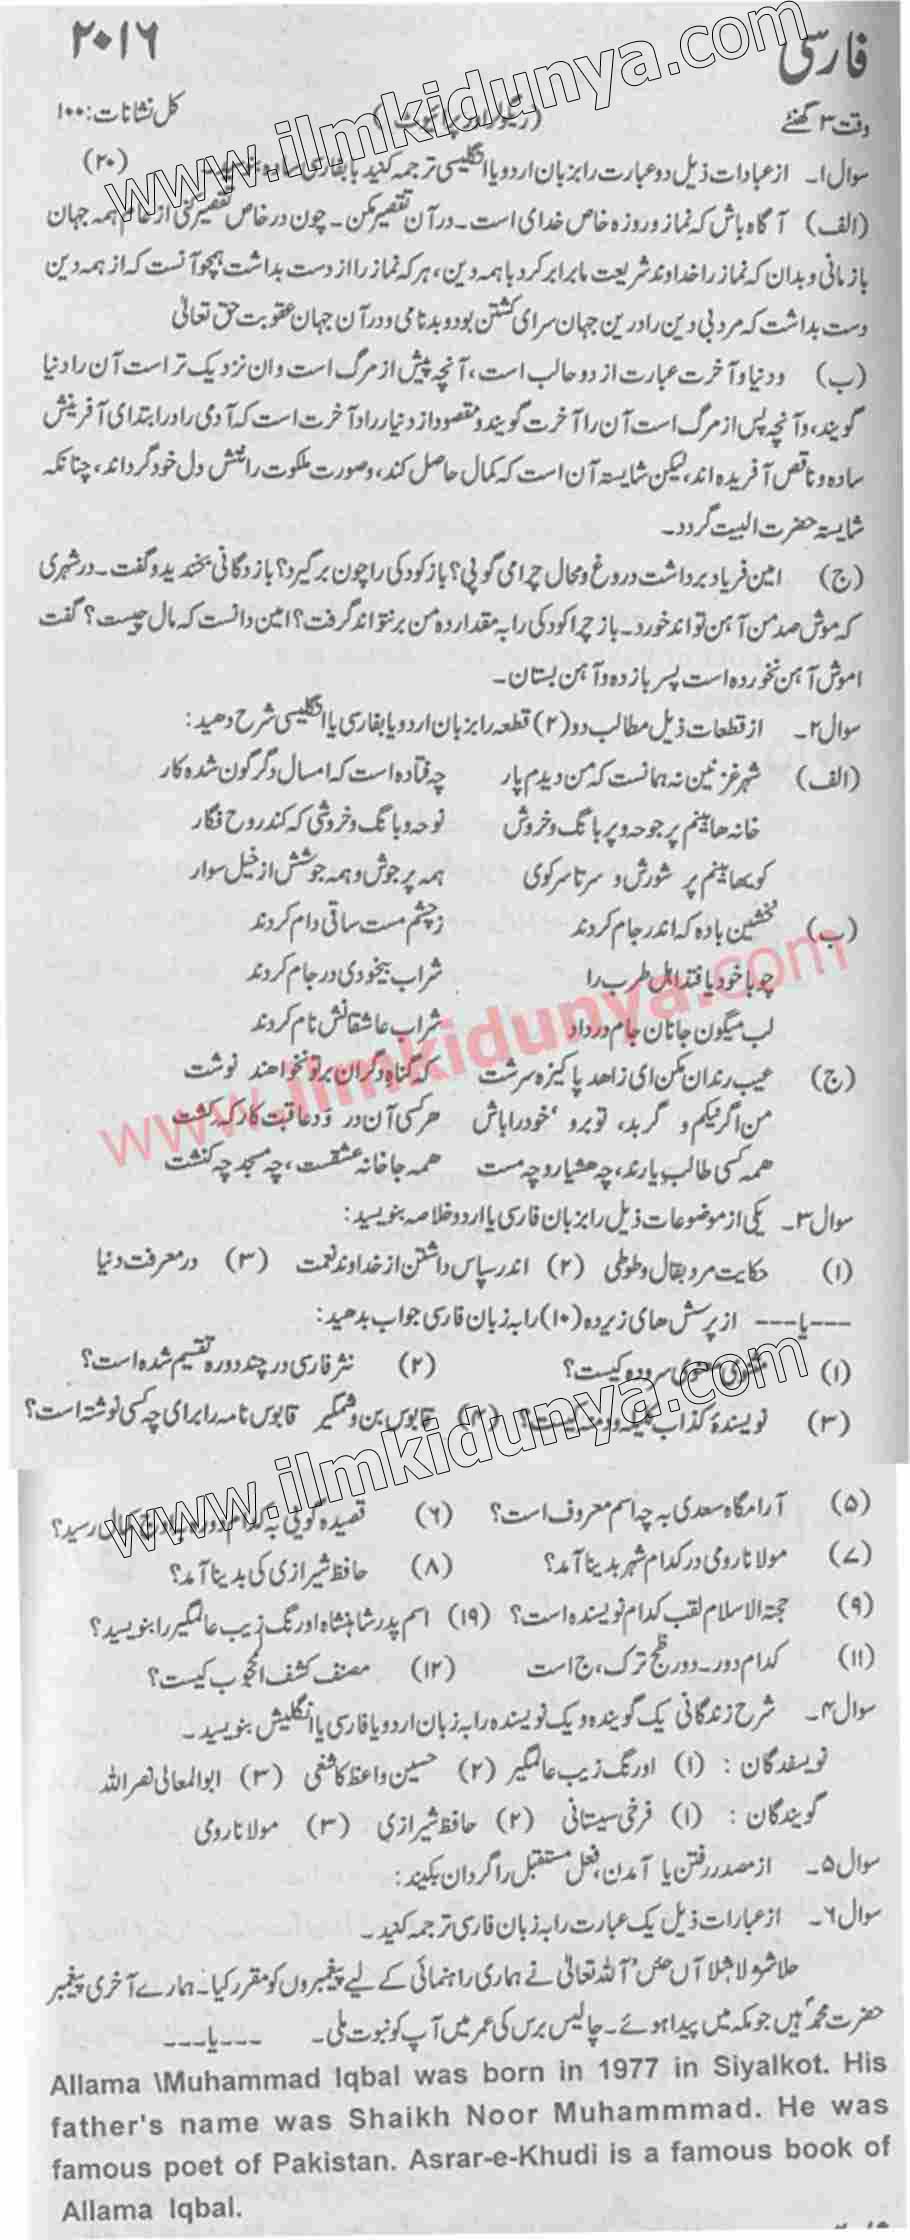 فارسی ۲۰۱۶
وقت ۳ گھنٹے (ریگولر اور پرائیویٹ) کل نشانات: ۱۰۰
www.ilmkidunya.com
سوال ۱۔ از عبادات ذیل دو عبارت را بزبان اردو یا انگلیسی ترجمہ کنید یا بفارسی سادہ (۲۰)
(الف) آگاہ باش کہ نماز و روزہ خاص خدای است۔ در آن تقصیر مکن۔ چون در خاص تقصیر کنی از عام ہمہ جہان
بازمانی و بدان کہ نماز را خداوند شریعت ما برابر کرد با ہمہ دین، ہر کہ نماز را از دست بداشت ہمچو آنست کہ از ہمہ دین
دست بداشت کہ مرد بی دین را درین جہان سرای کشتن بود و بدنامی و در آن جہان عقوبت حق تعالیٰ
(ب) ودنیا و آخرت عبارت از دو حالب است، آنچہ پیش از مرگ است و ان نزدیک تر است آن را دنیا
گویند، و آنچہ پس از مرگ است آن را آخرت گویند و مقصود از دنیا، زاد آخرت است کہ آدمی را در ابتدای آفرینش
سادہ و ناقص آفریدہ اند، لیکن شایستہ آن است کہ کمال حاصل کند، و صورت ملکوت را نتش دل خود گرداند، چنانکہ
شایستہ حضرت الہیت گردد۔
(ج) امین فریاد برداشت دروغ و محال چرا می گویی؟ باز کودکی را چون برگیرد؟ بازدگانی بخندید و گفت۔ در شہری
کہ موش صد من آہن تواند خورد۔ باز چرا کودکی را بہ مقدار دہ من بر نتواند گرفت؟ امین دانست کہ مال چیست؟ گفت
اموش آہن نخوردہ است پسر باز دہ و آہن بستان۔
سوال ۲۔ از قطعات ذیل مطالب دو (۲) قطعہ را بزبان اردو یا بفارسی یا انگلیسی شرح دھید:
(الف) شہر غزنین نہ ہمانست کہ من دیدم پار چہ فتادہ است کہ امسال دگر گون شدہ کار
خانہ ھا بینم پر جوحہ و پر بانگ و خروش نوحہ و بانگ و خروشی کہ کند روح فگار
کویھا بینم پر شورش و سرتاسر کوی ہمہ پر جوش و ہمہ جوشش از خیل سوار
(ب) نخستین بادہ کہ اندر جام کردند ز چشم مست ساقی دام کردند
چو با خود یافتد اہل طرب را شراب بیخودی در جام کردند
لب میگون جانان جام در داد شراب عاشقانش نام کردند
www.ilmkidunya.com
(ج) عیب رندان مکن ای زاھد پاکیزہ سرشت کہ گناہ دگران بر تو نخواھند نوشت
من اگر نیکم و گر بد، تو برو، خود را باش ھر کسی آن درود عاقبت کار کہ کشت
ھمہ کسی طالب یارند، چہ ھشیار و چہ مست ھمہ جا خانہ عشقست، چہ مسجد چہ کنشت
سوال ۳۔ یکی از موضوعات ذیل را بزبان فارسی یا اردو خلاصہ بنویسید:
(۱) حکایت مرد بقال و طوطی (۲) اندر سپاس داشتن از خداوند نعمت (۳) در معرفت دنیا
---یا--- از پرسش ھای زیر دہ (۱۰) را بہ زبان فارسی جواب بدھید:
(۱) مثنوی معنوی سرودہ کیست؟ (۲) نثر فارسی در چند دورہ تقسیم شدہ است؟
(۳) نویسندۂ کتاب کلیلہ و دمنہ کیست؟ (۴) قابوس بن وشمگیر قابوس نامہ را برای چہ کسی نوشتہ است؟
www.ilmkidunya.com
(۵) آرامگاہ سعدی بہ چہ اسم معروف است؟ (۶) قصیدہ گوئی بہ کدام دورہ کمال رسید؟
(۷) مولانا رومی در کدام شہر بدینا آمد؟ (۸) حافظ شیرازی کی بدینا آمد؟
(۹) حجتہ الاسلام لقب کدام نویسندہ است؟ (۱۹) اسم پدر شاہنشاہ اورنگ زیب عالمگیر را بنویسید؟
(۱۱) کدام دور۔ دور ترک، ج است (۱۲) مصنف کشف المحجوب کیست؟
سوال ۴۔ شرح زندگانی یک گویندہ و یک نویسندہ را بہ زبان اردو یا فارسی یا انگلیش بنویسید۔
نویسفدگان: (۱) اورنگ زیب عالمگیر (۲) حسین واعظ کاشفی (۳) ابوالمعالی نصر اللہ
گویندگان: (۱) فرخی سیستانی (۲) حافظ شیرازی (۳) مولانا رومی
سوال ۵۔ از مصدر رفتن یا آمدن، فعل مستقبل را گردان بکیند:
سوال ۶۔ از عبارات ذیل یک عبارت را بہ زبان فارسی ترجمہ کنید۔
اللہ تعالیٰ نے ہماری راہنمائی کے لیے پیغمبروں کو مقرر کیا۔ ہمارے آخری پیغمبر
حضرت محمدؐ ہیں جو مکہ میں پیدا ہوئے۔ چالیس برس کی عمر میں آپ کو نبوت ملی۔ ---یا---
Allama \Muhammad Iqbal was born in 1977 in Siyalkot. His
father's name was Shaikh Noor Muhammmad. He was
famous poet of Pakistan. Asrar-e-Khudi is a famous book of
Allama Iqbal.